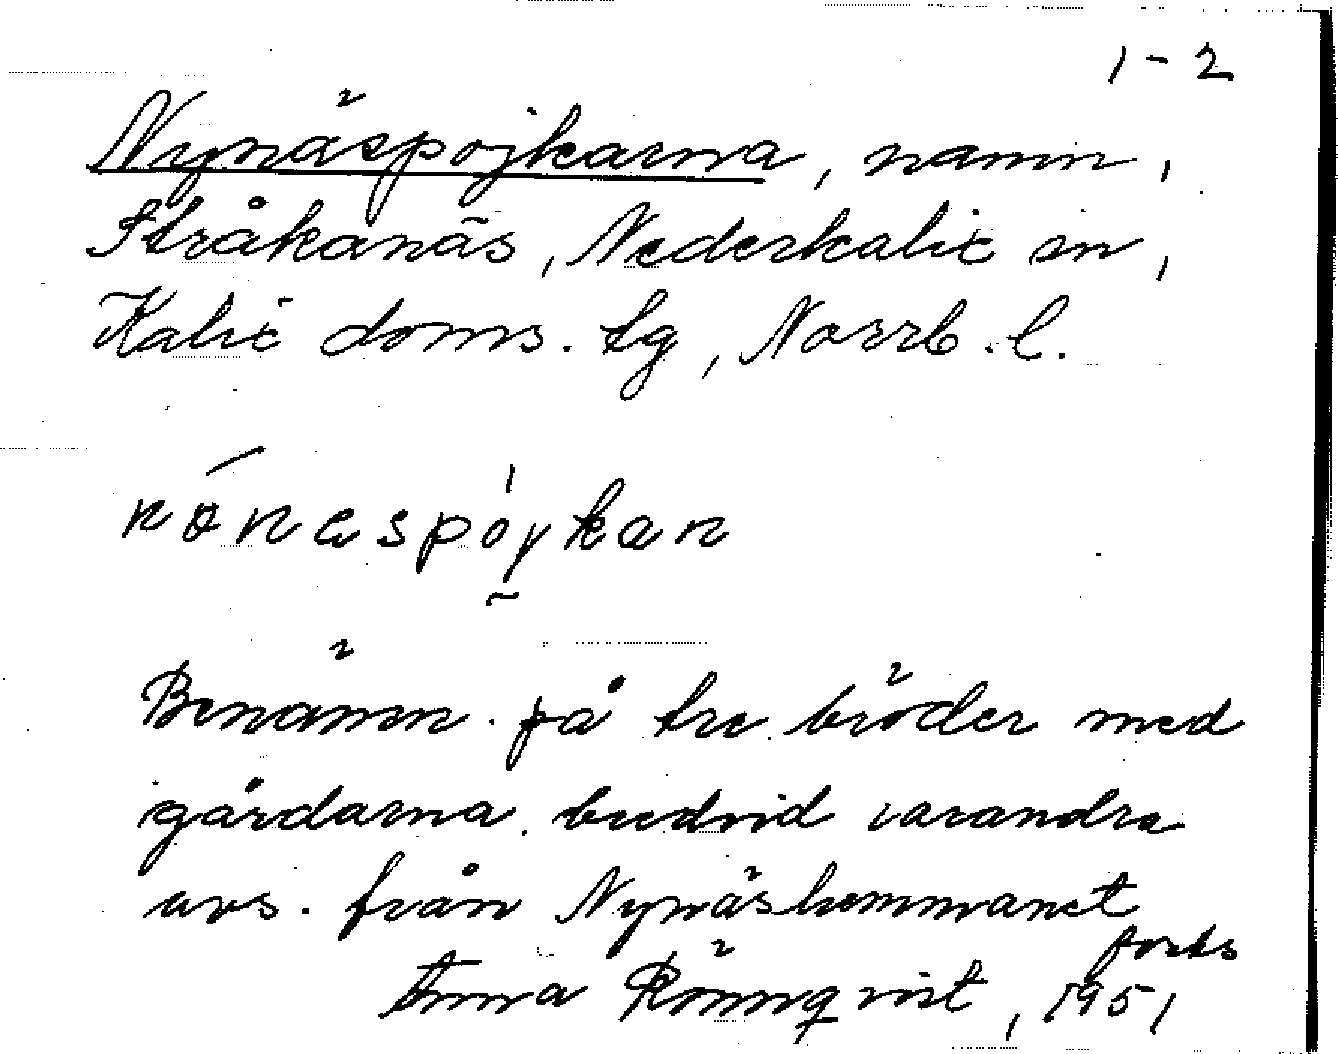 1-2
Nynäspojkarna, namn,
Stråkanäs, Nederkalix sn,
Kalix doms. tg, Norrb. l.
nónaspójkan
Benämn. på tre bröder med
gårdarna bredvid varandra
urs. från Nynäshemmanet
forts
Anna Rönnqvist, 1951